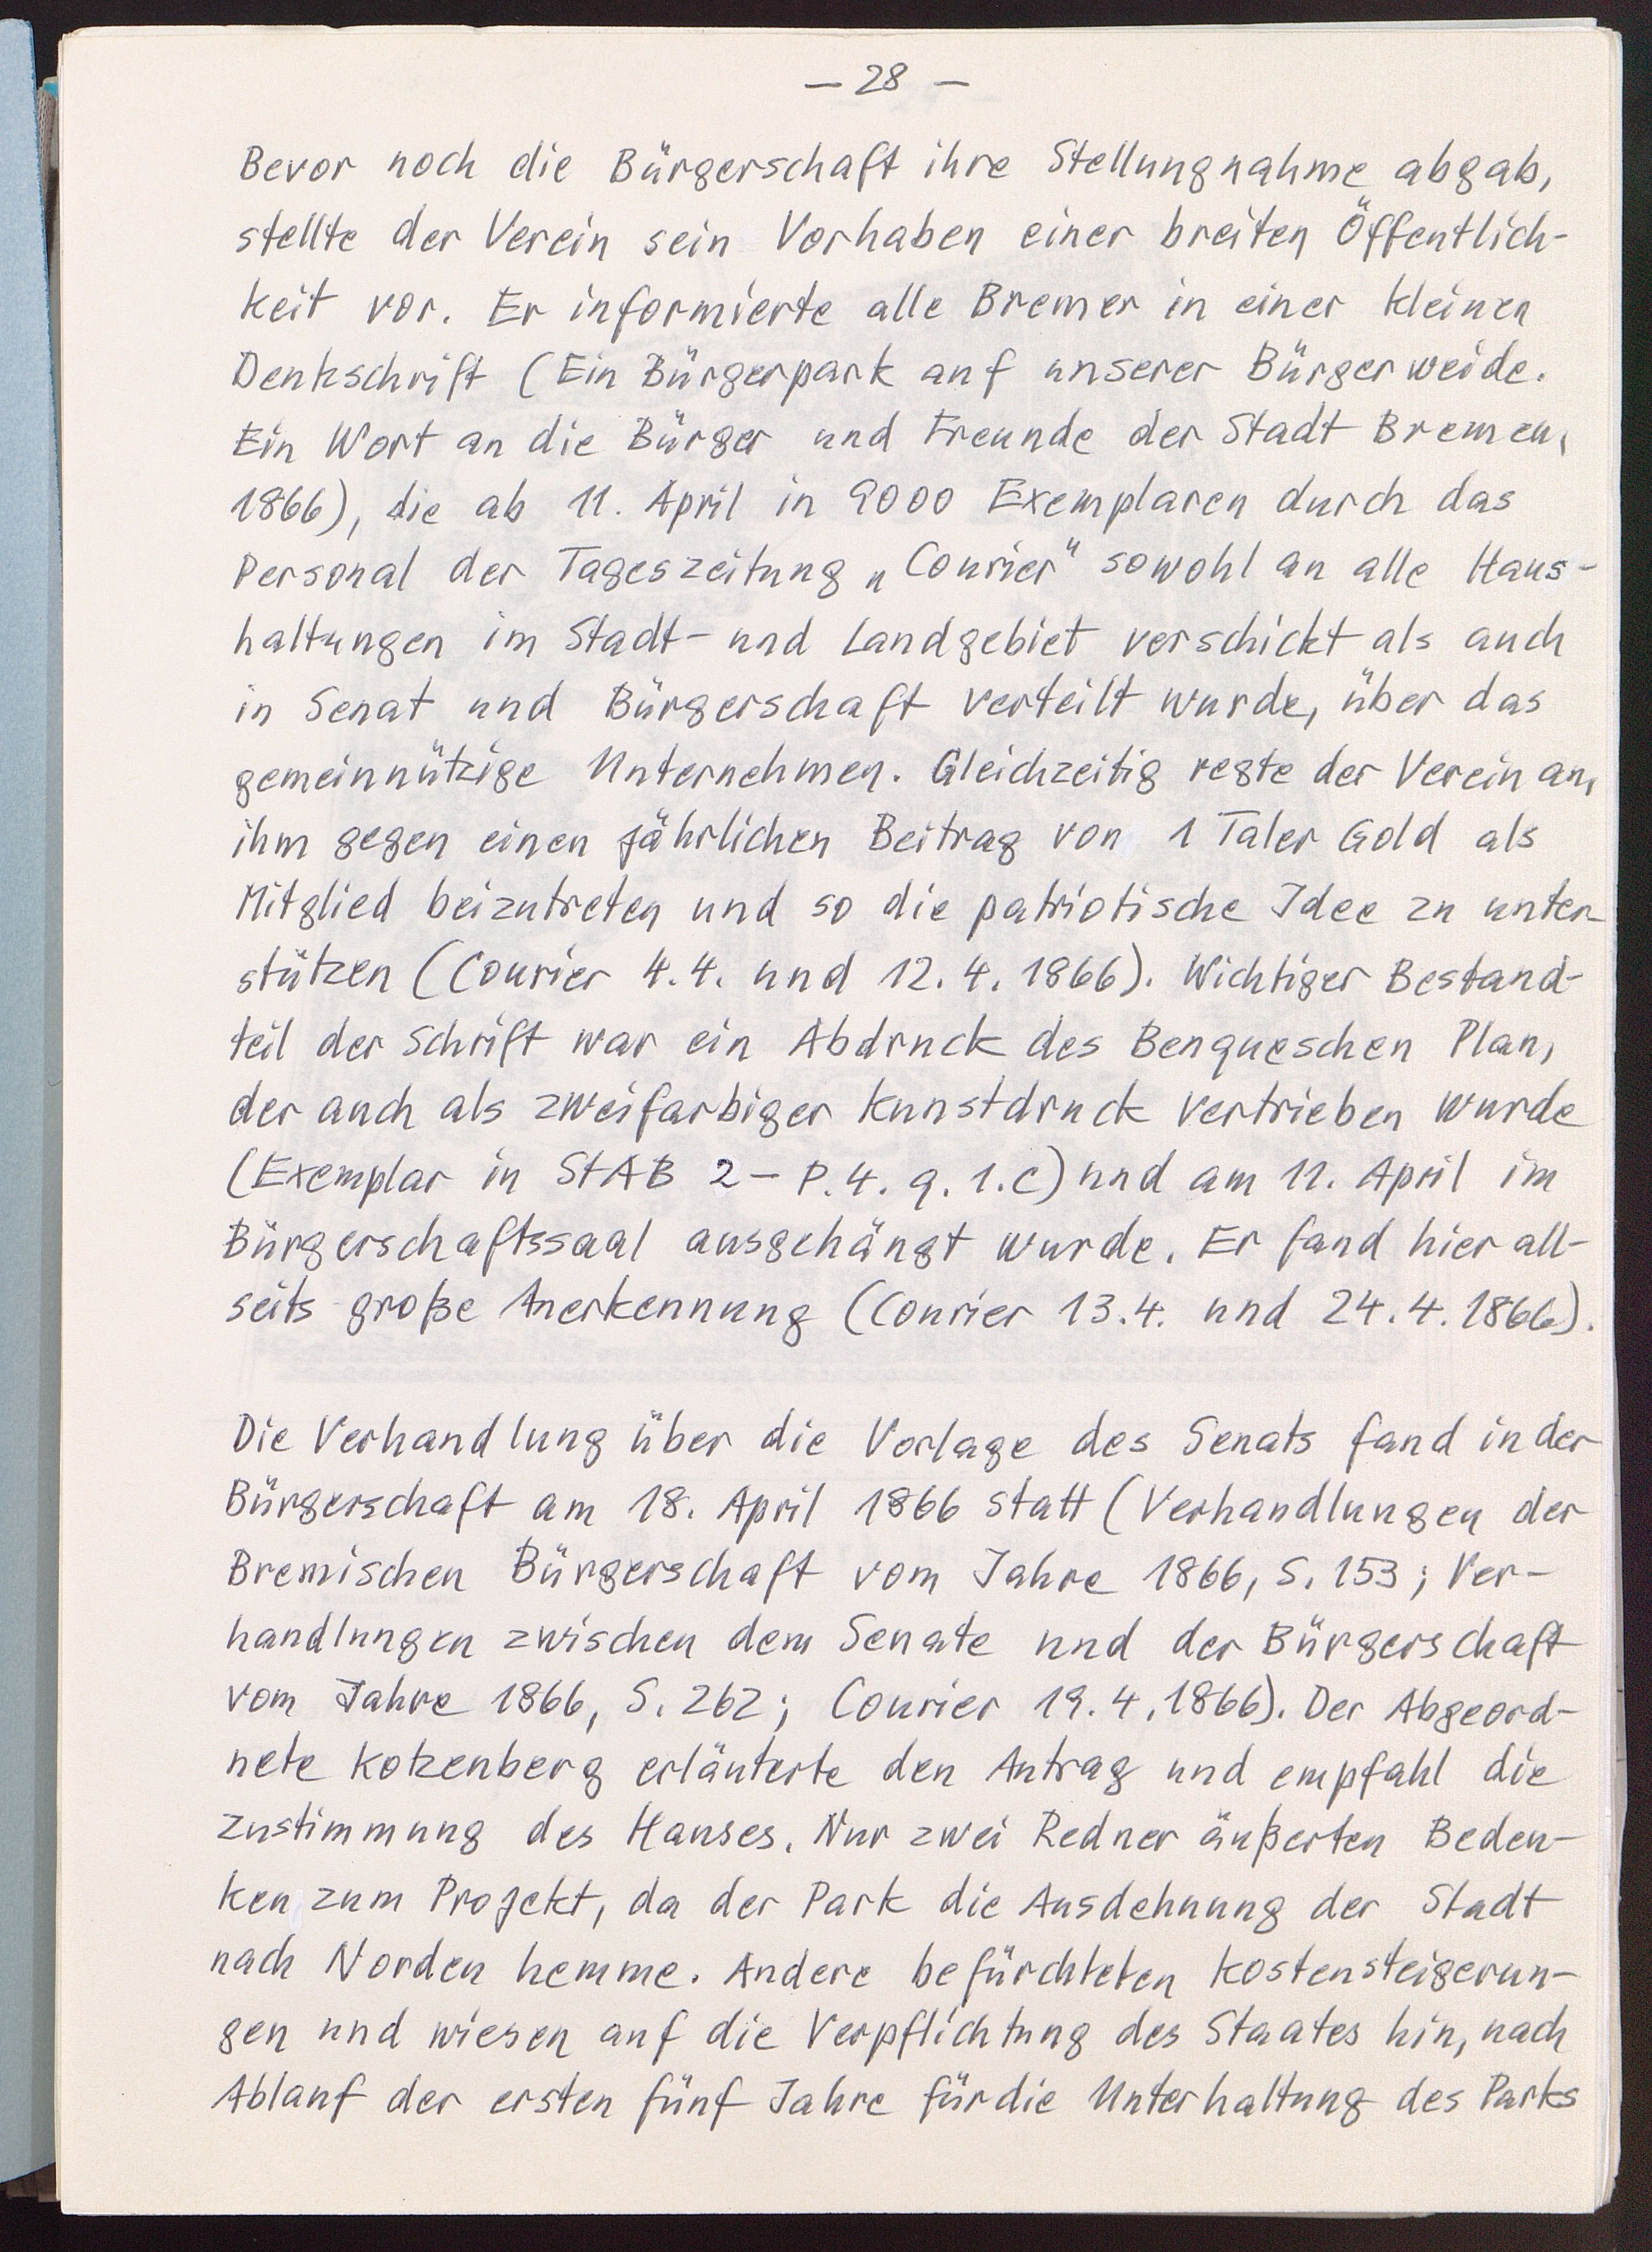 — 28 —
Bevor noch die Bürgerschaft ihre Stellungnahme abgab,
stellte der Verein sein Vorhaben einer breiten Öffentlich-
keit vor. Er informierte alle Bremer in einer kleinen
Denkschrift (Ein Bürgerpark auf unserer Bürgerweide.
Ein Wort an die Bürger und Freunde der Stadt Bremen,
1866), die ab 11. April in 9000 Exemplaren durch das
Personal der Tageszeitung „Courier" sowohl an alle Haus-
haltungen im Stadt- und Landgebiet verschickt als auch
in Senat und Bürgerschaft verteilt wurde, über das
gemeinnützige Unternehmen. Gleichzeitig regte der Verein an,
ihm gegen einen jährlichen Beitrag von 1 Taler Gold als
Mitglied beizutreten und so die patriotische Idee zu unter-
stützen (Courier 4.4. und 12.4.1866). Wichtiger Bestand-
teil der Schrift war ein Abdruck des Benqueschen Plan,
der auch als zweifarbiger Kunstdruck vertrieben wurde
(Exemplar in StAB 2 - P.4. q. 1.c) und am 11. April im
Bürgerschaftssaal ausgehängt wurde. Er fand hier all-
seits große Anerkennung (Courier 13.4. und 24.4.1866).
Die Verhandlung über die Vorlage des Senats fand in der
Bürgerschaft am 18. April 1866 statt (Verhandlungen der
Bremischen Bürgerschaft vom Jahre 1866, S. 153; Ver-
handlungen zwischen dem Senate und der Bürgerschaft
vom Jahre 1866, S. 262; Courier 19.4.1866). Der Abgeord-
nete Kotzenberg erläuterte den Antrag und empfahl die
Zustimmung des Hauses. Nur zwei Redner äußerten Beden-
ken zum Projekt, da der Park die Ausdehnung der Stadt
nach Norden hemme. Andere befürchteten Kostensteigerun-
gen und wiesen auf die Verpflichtung des Staates hin, nach
Ablauf der ersten fünf Jahre für die Unterhaltung des Parks